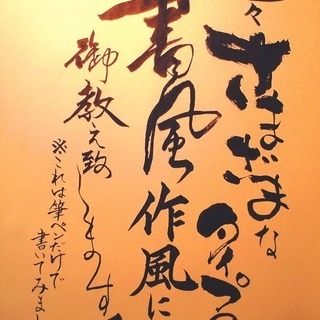 々さまざまな
タイプの
書風作風に
御教え致します
※これは筆ペンだけで
書いてみまし